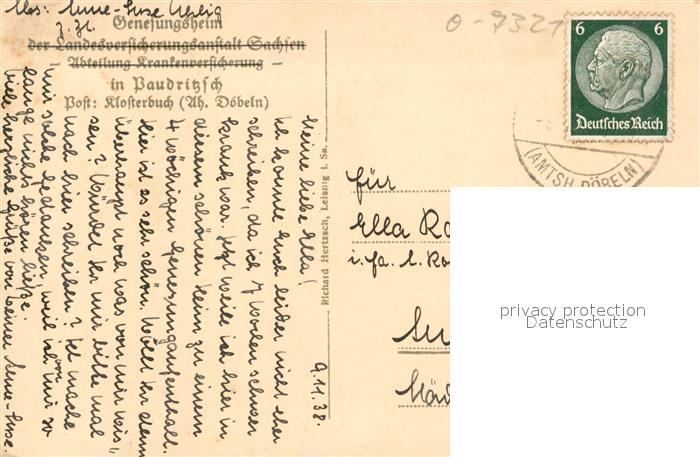 Abs: Anne-Suse Uhlig
z. Zt.
Genesungsheim
der Landesversicherungsanstalt Sachsen
- Abteilung Krankenversicherung -
in Paudritzsch
Post: Klosterbuch (Ah. Döbeln)
o-7321
6 6
Deutsches Reich
(AMTSH. DÖBELN)
9.11.38.
Meine liebe Ella!
Ich konnte Euch leider nicht eher
schreiben, da ich 7 Wochen schwer
krank war. Jetzt weile ich hier in
diesem schönen Heim zu einem
4 wöchigen Genesungsaufenthalt.
Hier ist es sehr schön. Wollt Ihr denn
überhaupt noch was von mir wis-
sen? Würdet Ihr mir bitte mal
nach hier schreiben? Ich mache
mir solche Gedanken, weil ich von mir so
lange nichts hören ließe.
Viele herzliche Grüße von Deiner Anne-Suse.
Richard Hertzsch, Leisnig i. Sa.
für
Ella Ro
i. Fa. L. Ro
privacy protection
Datenschutz